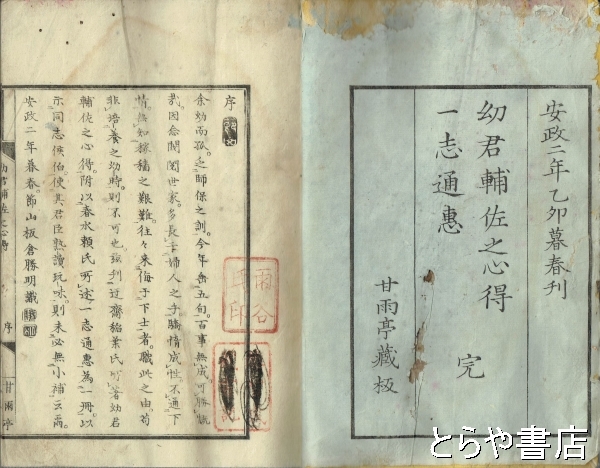 安政二年乙卯暮春刊
幼君輔佐之心得
一志通惠
完
甘雨亭藏板
序
余幼而孤。乏師保之訓。今年垂五旬。百事無成。可勝慨
哉。因念閥閲世家。多長于婦人之手。驕惰成性。不通下
情。無知稼穡之艱難。往々來侮于下士者。職此之由。苟
非培養之幼時。則不可也。玆刊迂齋稲葉氏所著幼君
輔佐之心得。附以春水頼氏所述一志通惠為一冊。以
示同志侯伯。使其君臣熟讀玩味。則未必無小補云爾。
安政二年暮春。節山板倉勝明識
幼君輔佐之心得
序
甘雨亭
雨谷
とらや書店